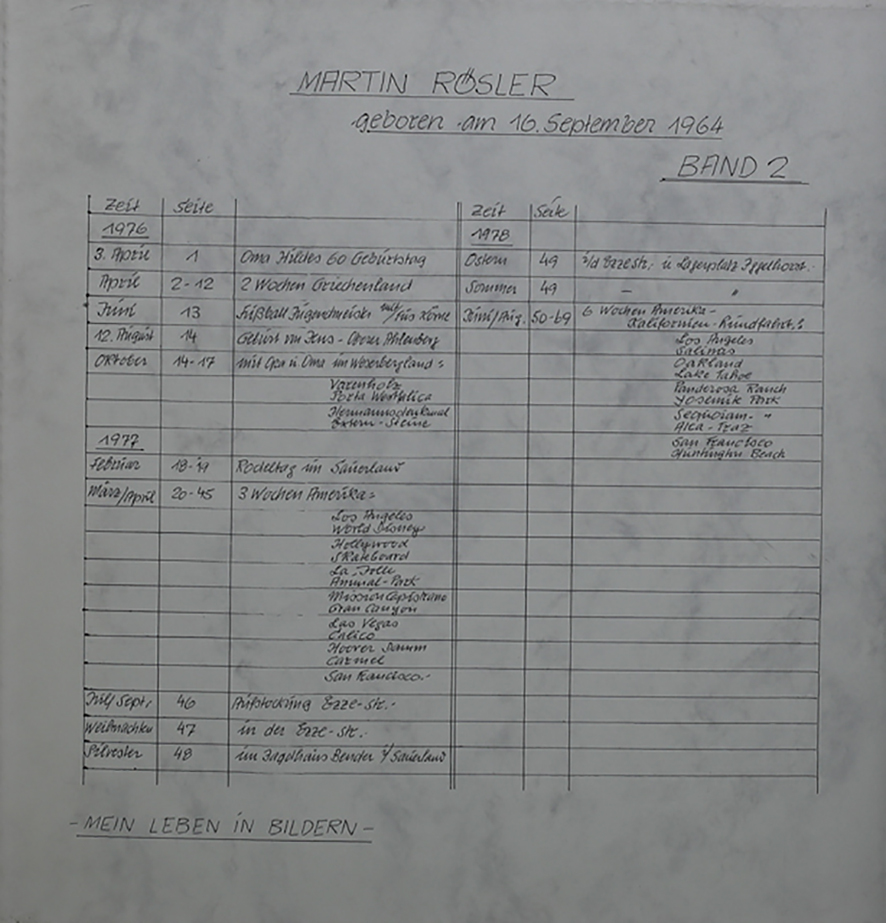 MARTIN RÖSLER
geboren am 16. September 1964
BAND 2
Zeit Seite
1976
3. April 1 Oma Hildes 60 Geburtstag
April 2-12 2 Wochen Griechenland
Juni 13 Fußball Jugendmeister mit/für Körne
12. August 14 Geburt von Jens-Oliver Ahlenberg
Oktober 14-17 mit Opa u Oma im Weserbergland:
Varenholz
Porta Westfalica
Hermannsdenkmal
Extern-Steine
1977
Februar 18-19 Rodeltag im Sauerland
März/April 20-45 3 Wochen Amerika:
Los Angeles
World Disney
Hollywood
Skateboard
La Jolle
Animal-Park
Mission Capistrano
Gran Canyon
Las Vegas
Calico
Hoover Damm
Carmel
San Francisco.-
Juli/Sept. 46 Aufstockung Erze-str.-
Weihnachten 47 in der Erze-str.-
Silvester 48 im Jagdhaus Bender i/Sauerland
Zeit Seite
1978
Ostern 49 i/d Erzestr. u Lagerplatz
Sommer 49 - "
Juni/Aug. 50-69 6 Wochen Amerika-
Kalifornien-Rundfahrt:
Los Angeles
Salinas
Oakland
Lake Tahoe
Ponderosa Ranch
Yosemite Park
"
Alca-Traz
San Francisco
Huntingtin Beach
- MEIN LEBEN IN BILDERN -